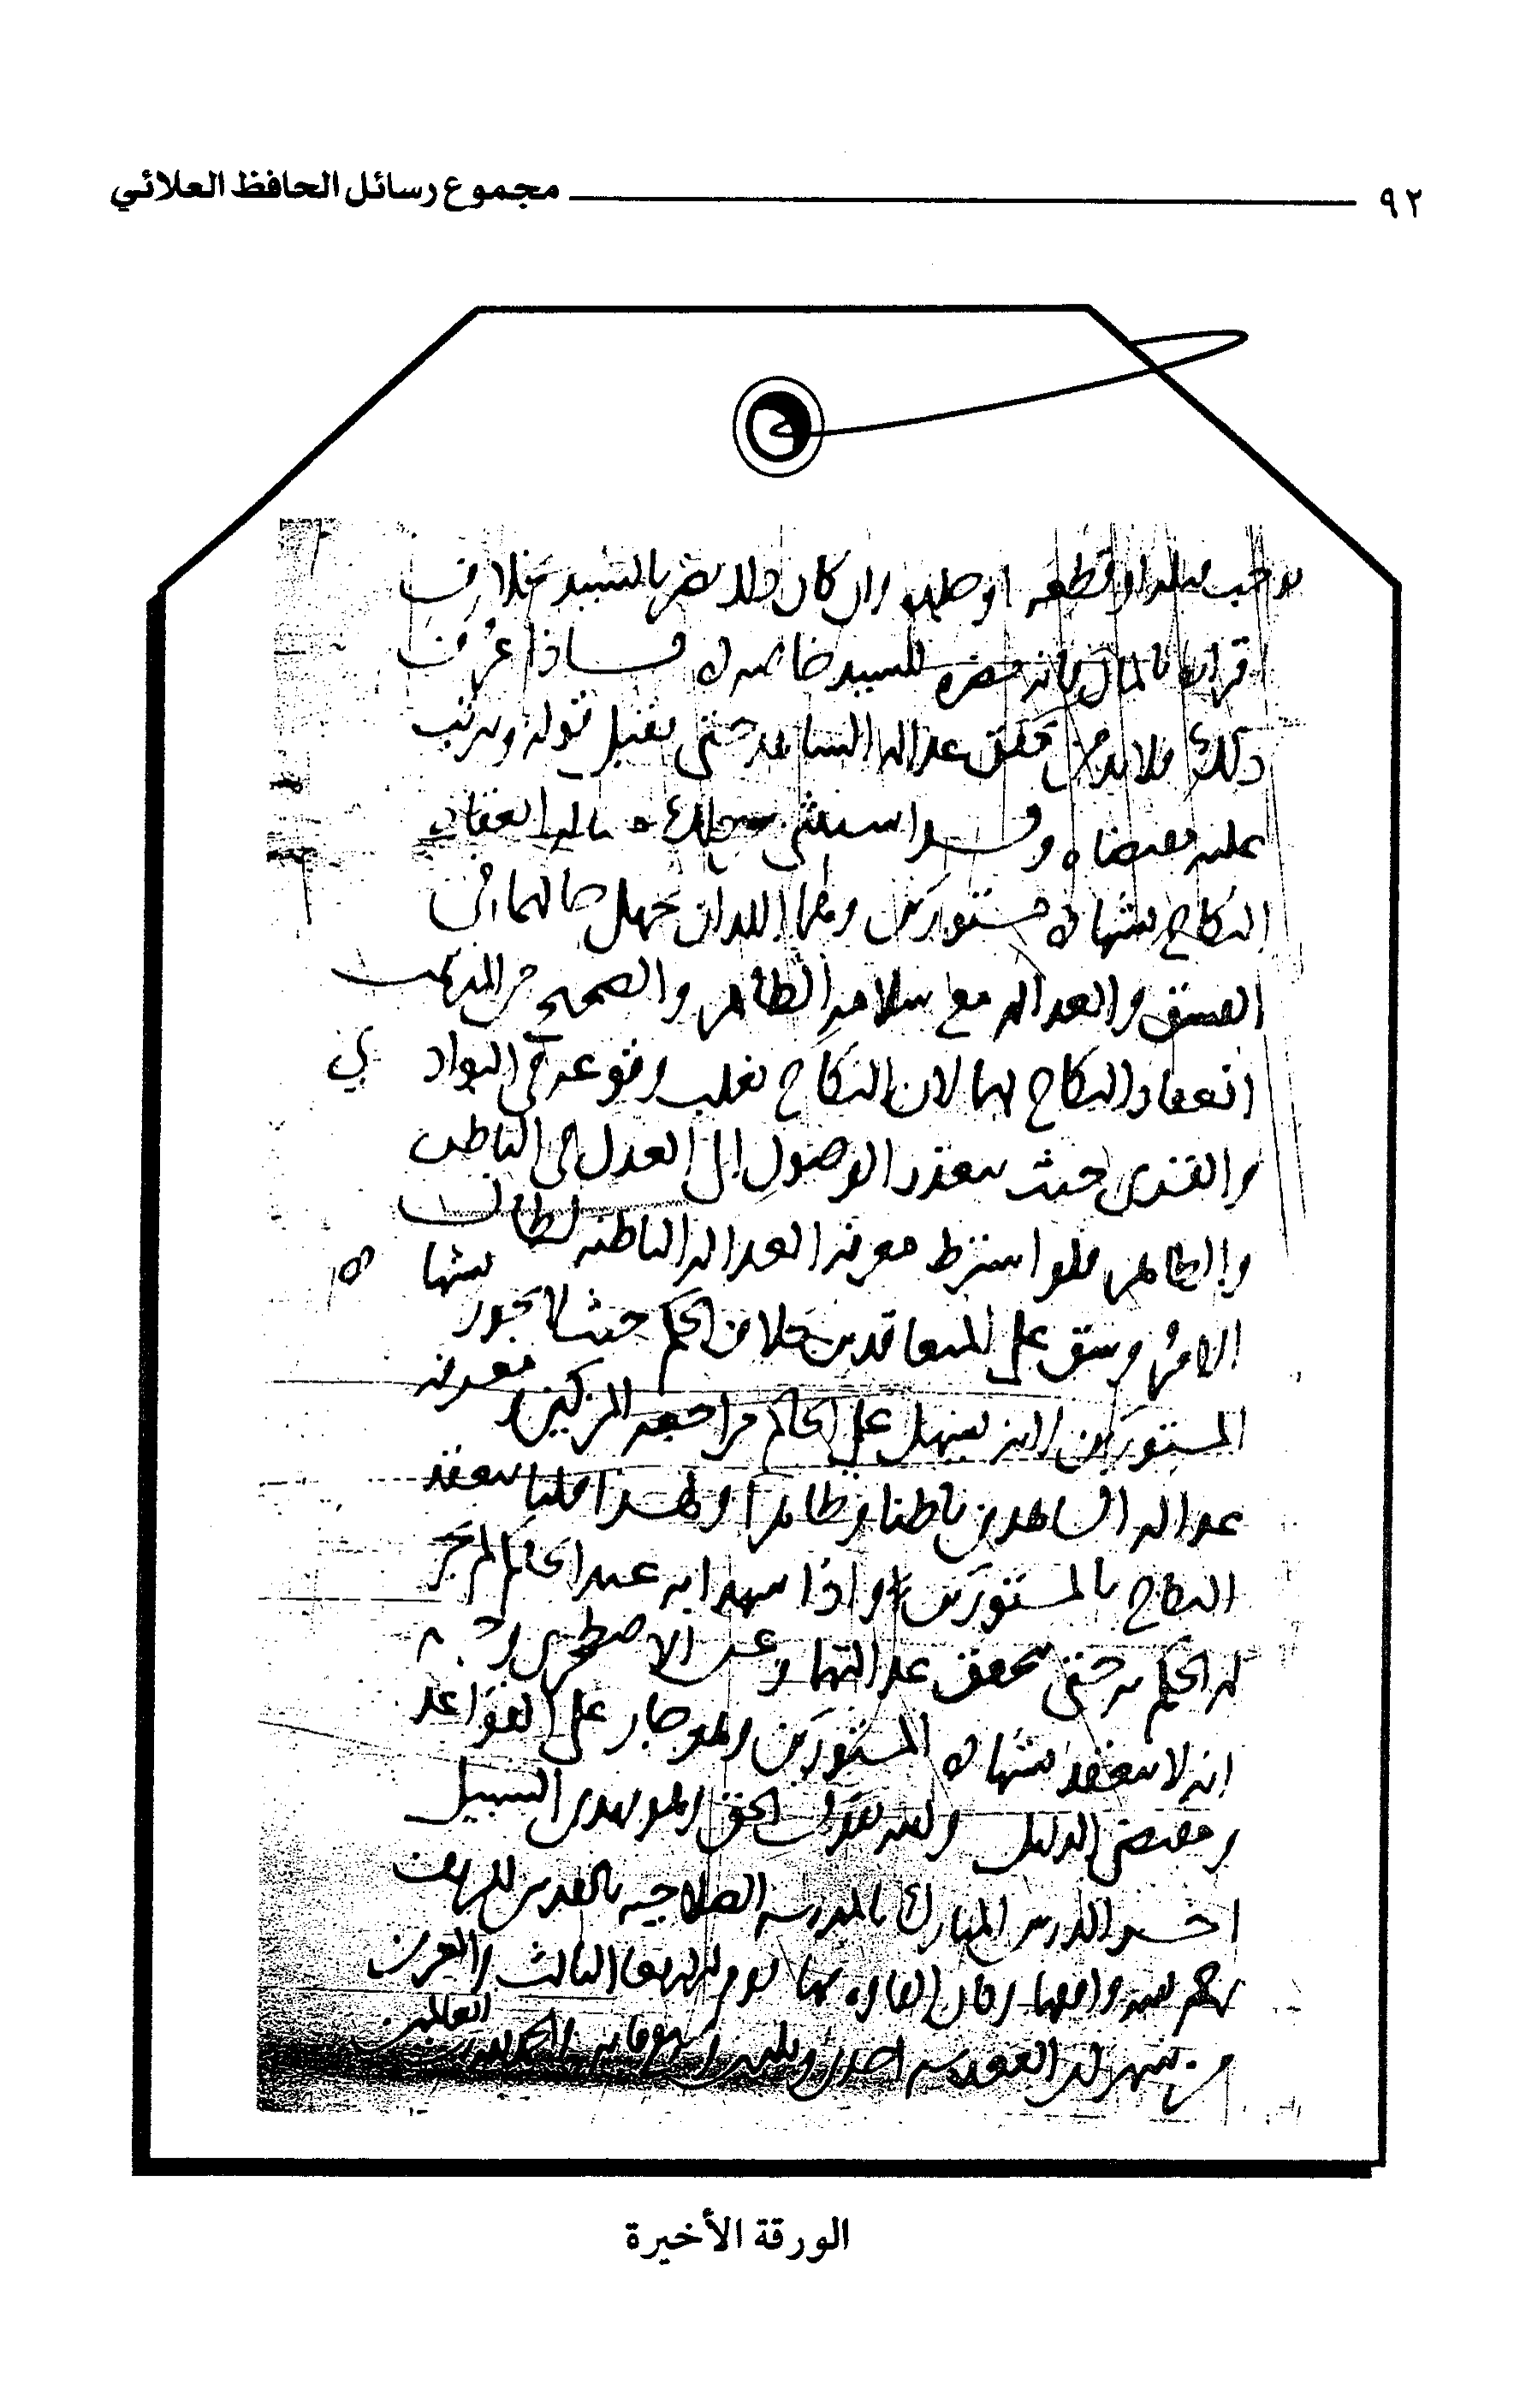 ٩٢ مجموع رسائل الحافظ العلائي
يوجب قتله او قطعه او صلبه وان كان ذلك يضر بالسيد بخلاف
اقراره بالمال فانه مضره للسيد خاصه فاذا عرف
ذلك فلا بد من تحقق عداله الشاهد حتى يقبل قوله ويرتب
عليه مقتضاه وقد استثنى من ذلك مساله انعقاد
النكاح بشهاده مستورين وهما اللذان يجهل حالهما في
الفسق والعداله مع سلامه الظاهر والصحيح من المذهب
انعقاد النكاح بهما لان النكاح يغلب وقوعه في البوادي
والقرى حيث يتعذر الوصول الى العدل في الباطن
والظاهر فلو اشترط معرفه العداله الباطنه لطال
الامر وشق على المتعاقدين بخلاف الحكم حيث لا يجوز بشهاده
المستورين لانه يسهل على الحاكم مراجعه المزكين ومعرفه
عداله الشاهدين باطنا وظاهرا ولهذا قلنا ينعقد
النكاح بالمستورين واذا شهدا به عند الحاكم لم يجز
له الحكم به حتى يتحقق عدالتهما وعن الاصطخري وجه
انه لا ينعقد بشهاده المستورين وهو جار على القواعد
ومقتضى الدليل والله يقول الحق وهو يهدي السبيل
اخر الدرس المبارك بالمدرسه الصلاحيه بالقدس الشريف
رحم الله واقفها وكان القاوه بها يوم الثالث والعشرين
من شهر ذي القعده سنه احدى وثلاثين وسبعمايه والحمد لله رب العالمين
الورقة الأخيرة